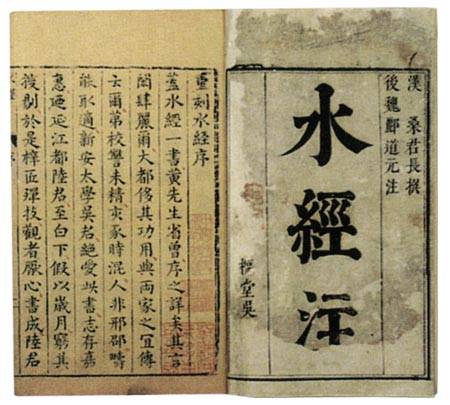 漢 桑君長撰
後魏酈道元注
水經注
堂吳
重刻水經序
蓋水經一書黄先生省曾序之詳矣其言
閎肆麗爾大都侈其功用與兩家之宜傳
云爾第校讐未精亥豕時混人非邢邵疇
能取適新安太學吳君絶愛此書志存嘉
惠迺延江都陸君至白下假以歲月窮其
搜剔於是梓匠殫技觀者厭心書成陸君